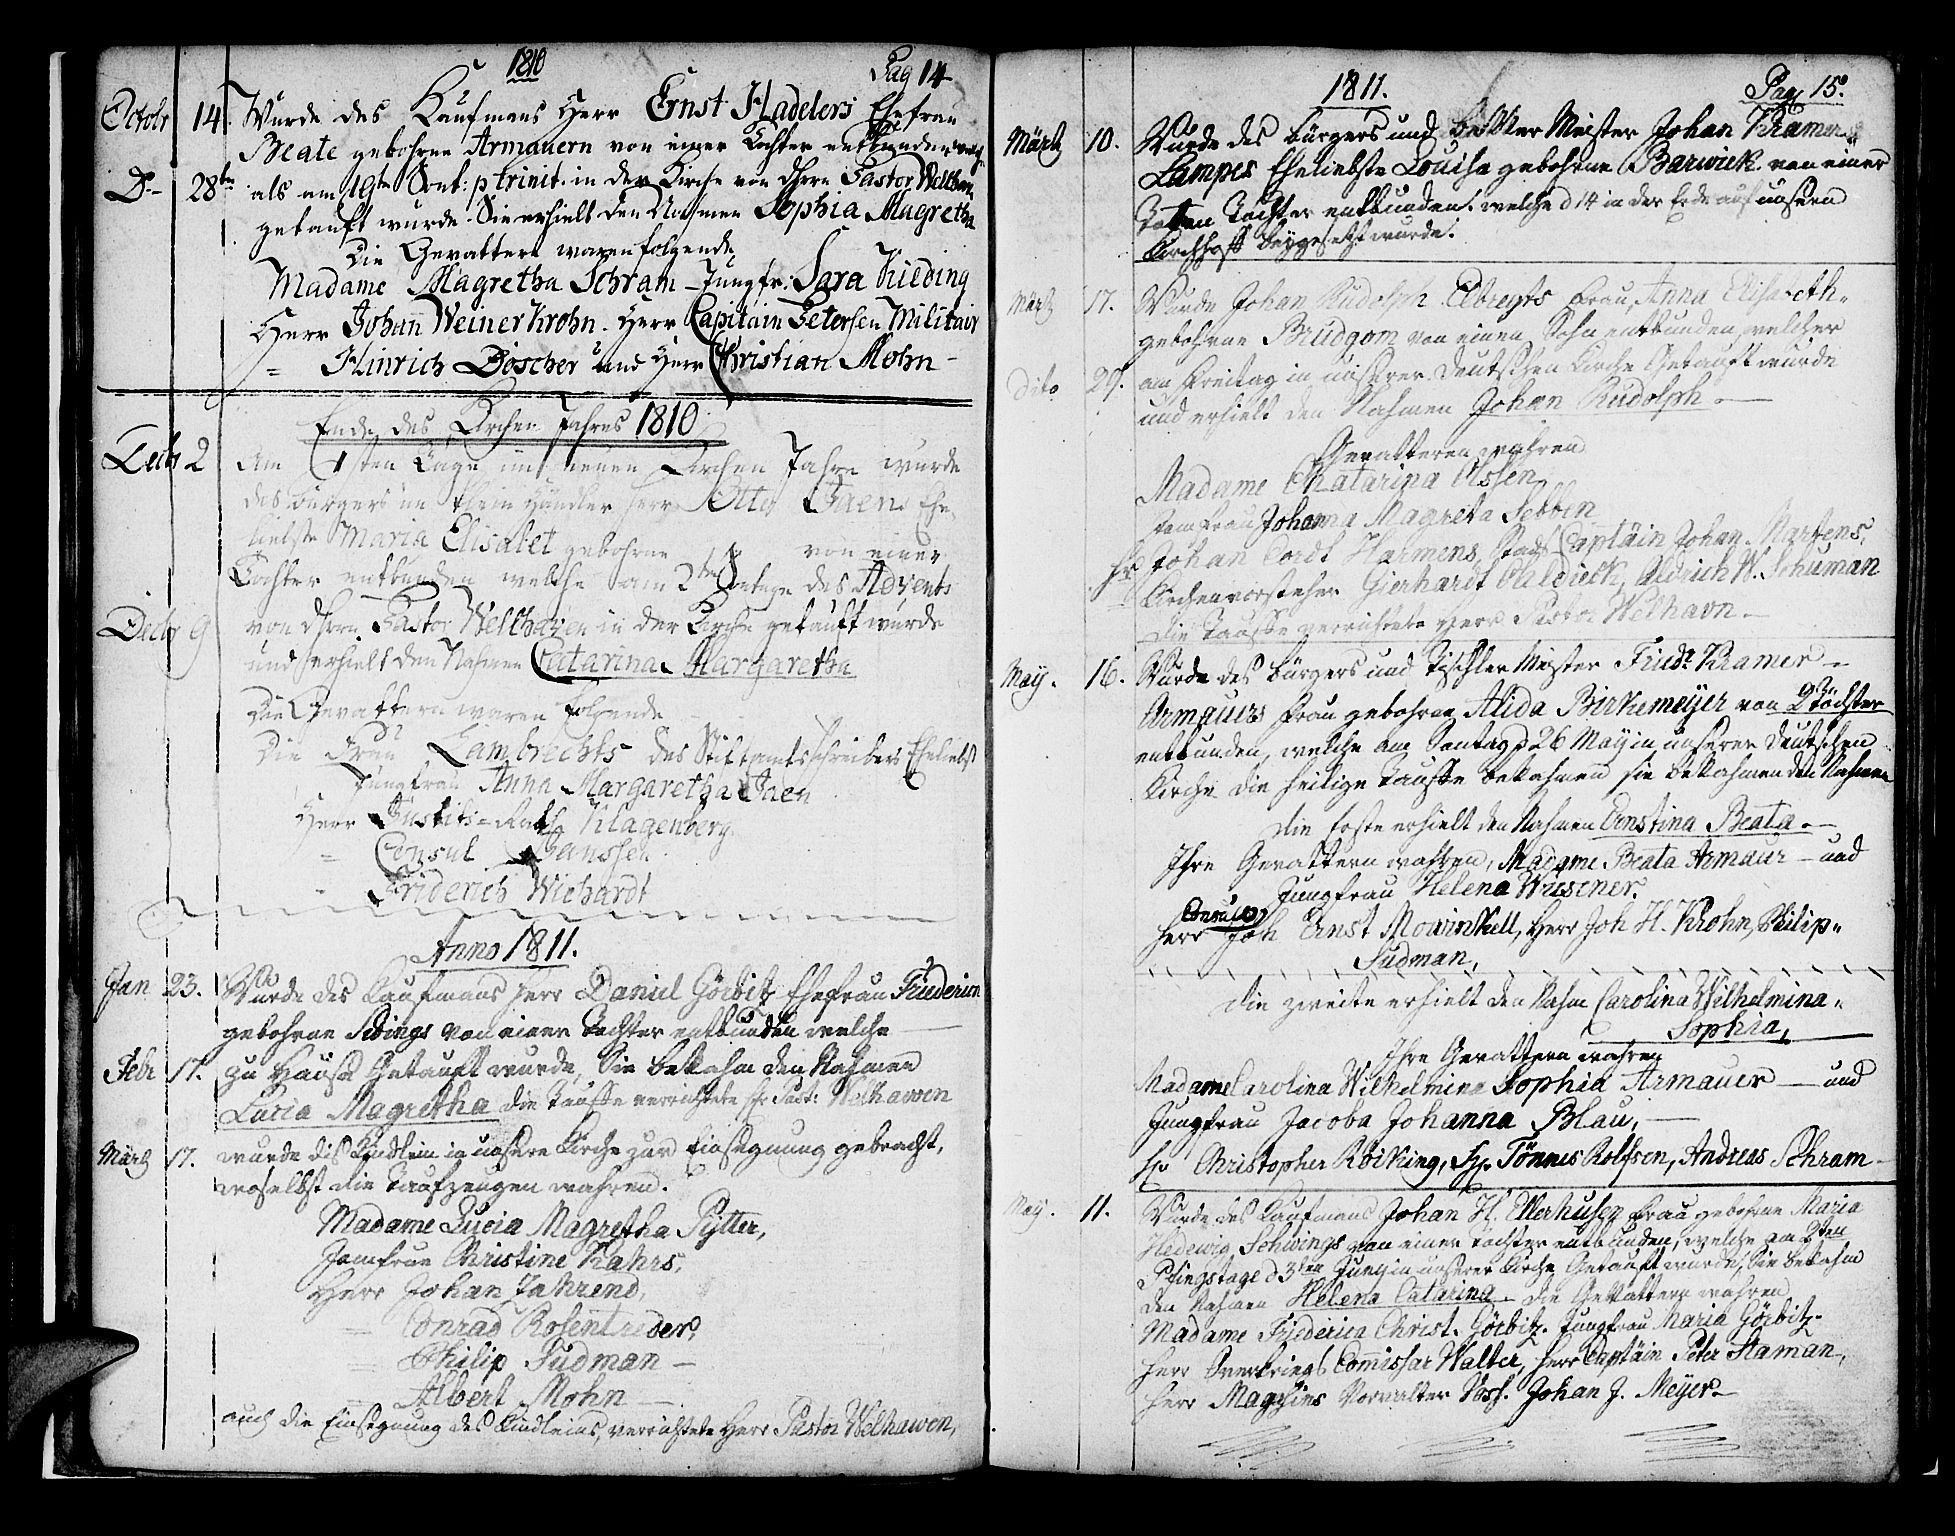 1810
Pag 14
Octobr 14. Wurde des Kaufmans Herr Ernst Hadelers Ehefrau
Beate gebohrne Armauern von einer Tochter entbunden welche
Do 28ten als am 19ten Sont: p trinit. in der Kirche von dHerrn Pastor Welthaven
getauft wurde. Sie erhielt den Nahmen Sophia Magretha
Die Gevattern waren folgende
Madame Magretha Schram – Jungfr: Sara Kilding
Herr Johann Weiner Krohn. Herr Capitain Petersen Militair
= Hinrich Döscher und Herr Christian Mohn –
Ende des Kirchen Jahres 1810
Decbr 2 Am 1sten Tage im neuen Kirchen Jahre wurde
des Bürgers un Herr Otto Jaens Ehe-
liebste Maria Elisabet gebohrne von einer
Tochter entbunden welche am 2ten Sontage des Advents
Decbr 9 von dHerrn Pastor Welthaven in der Kirche getauft wurde
und erhielt den Nahmen Catarina Margaretha
Die Gevattern waren folgende
Die Frau Lambrechts des Stiftamtsschreibers Eheliebst
Jungfrau Anna Margaretha Jaen
Herr Justits=Rath Klagenberg
= Consul Janssen
- Friderich Wichardt
Anno 1811.
Jan 23. Wurde des Kaufmans Herr Daniel Görbitz Ehefrau Friederica
gebohrne Sedings von einer Tochter entbunden welche
Febr 17. zu Hause Getauft wurde, Sie bekahm den Nahmen
Lucia Magretha die Tauffe verrichtete Hr Past: Welhawen
Märtz 17. wurde dis Kindlein in unsere Kirche zur Einsegnung gebracht,
woselbst die Taufzeugen wahren.
Madame Lucia Magretha Pÿtter,
Jomfrue Christine Kahrs,
Herr Johan Fahrend,
= Conrad Rosentreder,
= Philip Sudman –
= Albert Mohn –
auch die Einsegnung des Kindleins, verrichtete Herr Pastor Welhawen,
1811.
Pag 15.
Märtz 10. Wurde des Bürgers und Bekker Meister Johan Kramer
Lampes Eheliebste Louisa gebohrne Barwick von einer
Toten Tochter entbunden. welche d 14 in der Erde auf unsern
Kirchhoff beygesetzt wurde.
Märtz 17. Wurde Johan Rudolph Elbregts Frau, Anna Elisabeth
gebohrne Brüdgom von einen Sohn entbunden, welcher
dito 29. am Freitag in unserer Deutschen Kirche Getauft wurde
und erhielt den Nahmen Johan Rudolph.
Gevattern wahren
Madame Chatarina Olssen
Jomfrau Johanna Magreta Sebben
Hr Johan Cordt Harmens, Stads Captäin Johan Martens,
= Kirchenvorsteher Gierhardt Oldieck, Didrich W. Schuman
Die Tauffe verrichtete Herr Pastor Welhavn –
Maÿ. 16. Wurde des Bürgers und Tischler Meister Friedr Kramer –
Armauers Frau gebohrne Alida Birkemeÿer von 2 Töchter
entbunden, welche am Sontag d 26 Maÿ in unserer Deutschen
Kirche die heilige Tauffe bekahmen sie bekahmen den Nahmen
Die Erste erhielt den Nahmen Ernstina Beata.
Ihre Gevattern wahren, Madame Beata Armaur – und
Jungfrau Helena Wüsener.
Consul
Herr Joh Ernst Mowinkell, Herr Joh H. Krohn, Philip
Sudman,
Die zweite erhielt den Nahm Carolina Wilhelmina
Sophia,
Ihre Gevattern wahren
Madame Carolina Wilhelmina Sophia Armauer – und
Jungfrau Jacoba Johanna Blau,
Hr Christopher Röicking, Hr Tönnes Rolfsen, Andreas Schram
May. 11. Wurde des Kaufmans Johan H. Ellerhusen Frau gebohrne Maria
Hedewig Schwings von einer Tochter entbunden, welche am 2ten
Pfingstage d 3ten Junÿ in unserer Kirche Getauft wurde, Sie bekahm
den Nahmen Helena Catarina. Die Gevattern wahren
Madame Friederica Christ. Görbitz. Jungfrau Maria Görbitz.
Herr Overkriegs Comissar Walter, Herr Captäin Peter Staman,
Herr Magzins Vorvalter Voss. Johan J. Meÿer.